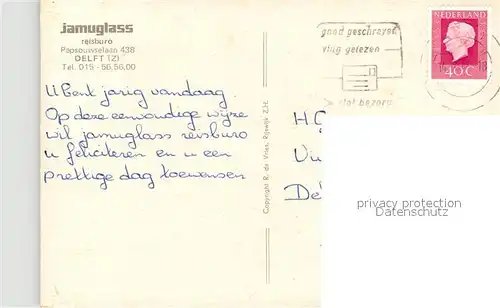 jamuglass
reisburo
Papsouwselaan 438
DELFT (ZI)
Tel. 015 - 56.56.00
U bent jarig vandaag.
Op deze eenvoudige wijze
wil jamuglass reisburo
u feliciteren en u een
prettige dag toewensen
Copyright R. de Vries, Rijswijk Z.H.
goed geschreven
vlug gelezen
vlot bezorgd
NEDERLAND
40 C
H.
De
privacy protection
Datenschutz